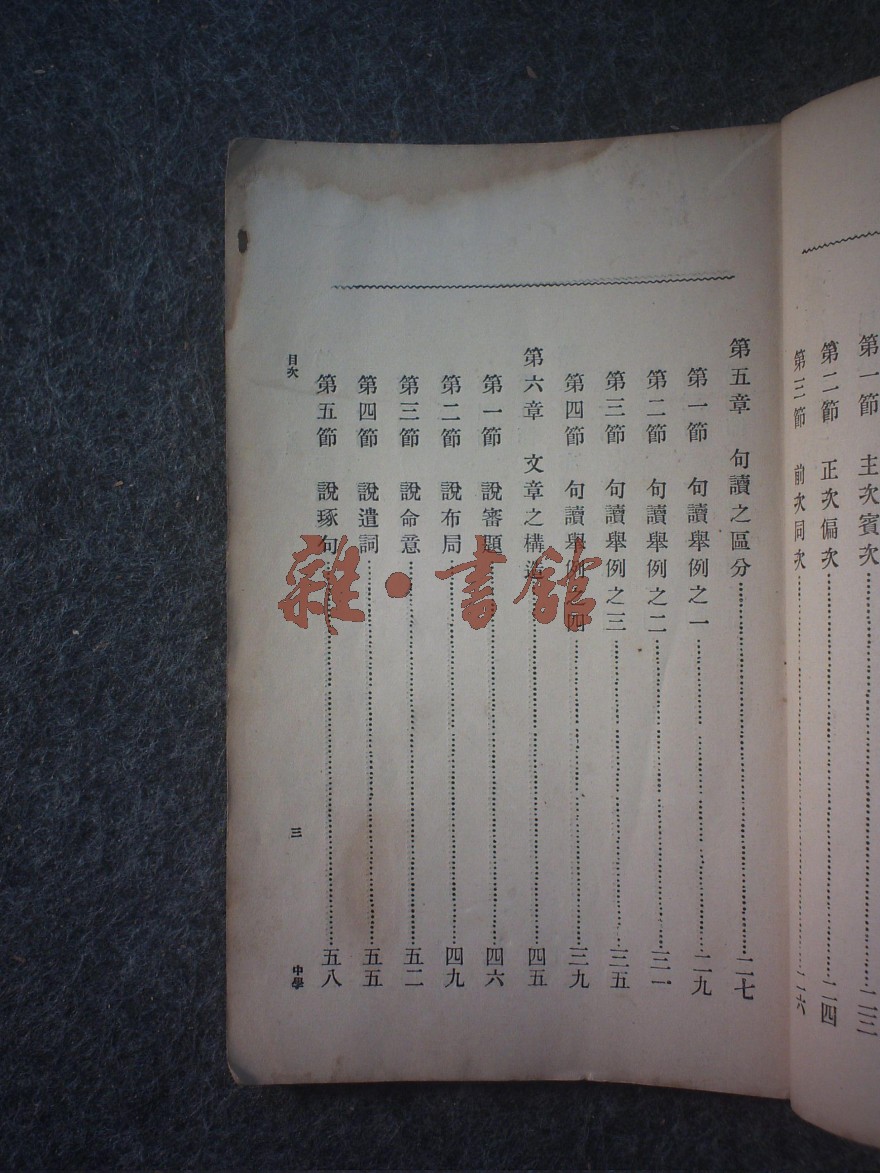 第一節 主次賓次 二三
第二節 正次偏次 二四
第三節 前次同次 二六
第五章 句讀之區分 二七
第一節 句讀舉例之一 二九
第二節 句讀舉例之二 三一
第三節 句讀舉例之三 三五
第四節 句讀舉例之四 三九
第六章 文章之構造 四五
第一節 說審題 四六
第二節 說布局 四九
第三節 說命意 五二
第四節 說遣詞 五五
第五節 說琢句 五八
目次 三 中學
雜·書館